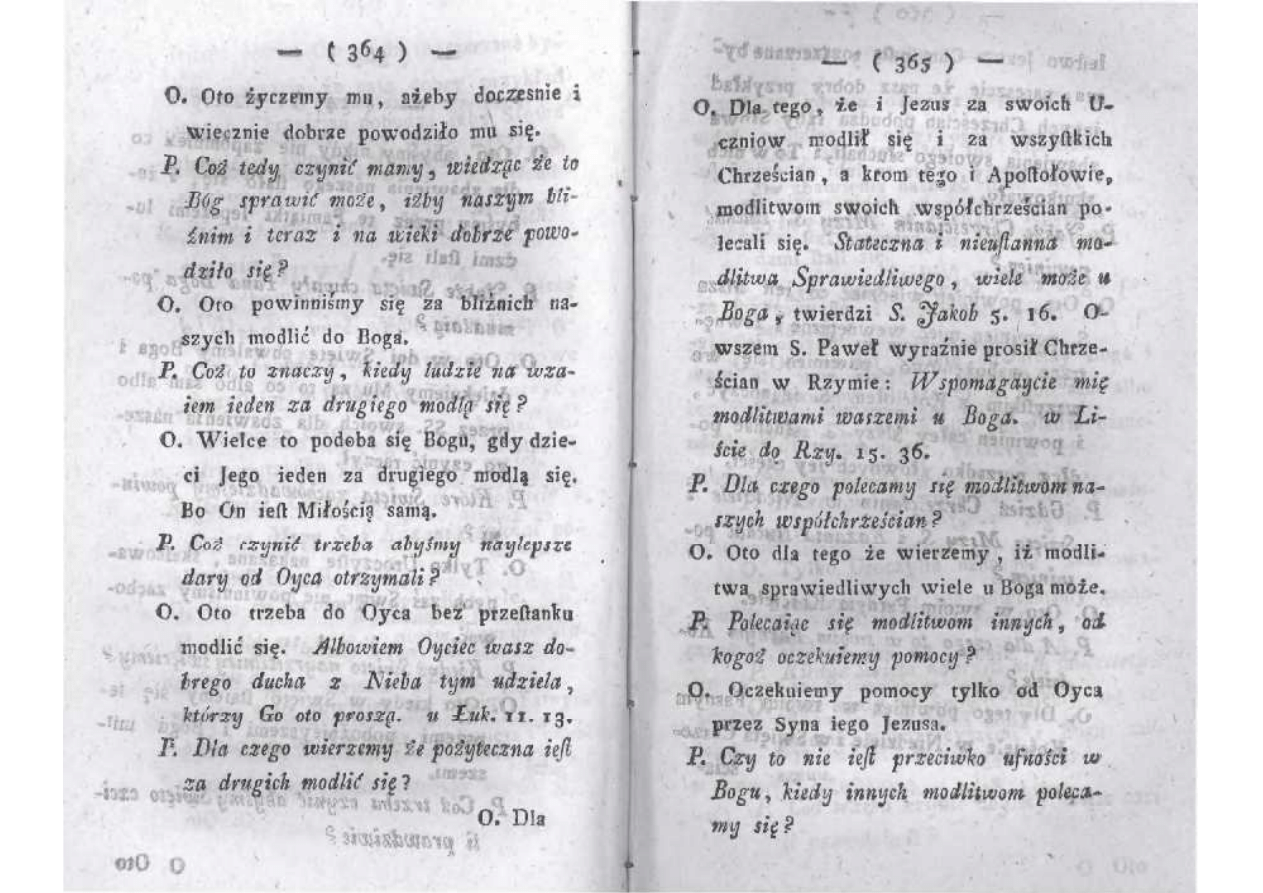 — ( 364 ) —
O. Oto życzemy mu, ażeby doczesnie i
wiecznie dobrze powodziło mu się.
P. Coż tedy czynić mamy, wiedząc że to
Bóg sprawić może, iżby naszym bli-
źnim i teraz i na wieki dobrze powo-
dziło się?
O. Oto powinniśmy się za bliźnich na-
szych modlić do Boga.
P. Coż to znaczy, kiedy ludzie na wza-
iem ieden za drugiego modlą się?
O. Wielce to podoba się Bogu, gdy dzie-
ci Jego ieden za drugiego modlą się.
Bo On ieſt Miłością samą.
P. Coż czynić trzeba abyśmy naylepsze
dary od Oyca otrzymali?
O. Oto trzeba do Oyca bez przeſtanku
modlić się. Albowiem Oyciec wasz do-
brego ducha z Nieba tym udziela,
którzy Go oto proszą. u Łuk. 11. 13.
P. Dla czego wierzemy że pożyteczna ieſt
za drugich modlić się?
O. Dla
— ( 365 ) —
O. Dla tego, że i Jezus za swoich U-
czniow modlił się i za wszyſtkich
Chrześcian, a krom tego i Apoſtołowie,
modlitwom swoich współchrześcian po-
lecali się. Stateczna i nieuſtanna mo-
dlitwa Sprawiedliwego, wiele może u
Boga, twierdzi S. Jakob 5. 16. O-
wszem S. Paweł wyraźnie prosił Chrze-
ścian w Rzymie: Wspomagaycie mię
modlitwami waszemi u Boga. w Li-
ście do Rzy. 15. 36.
P. Dla czego polecamy się modlitwom na-
szych współchrześcian?
O. Oto dla tego że wierzemy, iż modli-
twa sprawiedliwych wiele u Boga może.
P. Polecaiąc się modlitwom innych, od
kogoż oczekuiemy pomocy?
O. Oczekuiemy pomocy tylko od Oyca
przez Syna iego Jezusa.
P. Czy to nie ieſt przeciwko ufności w
Bogu, kiedy innych modlitwom poleca-
my się?